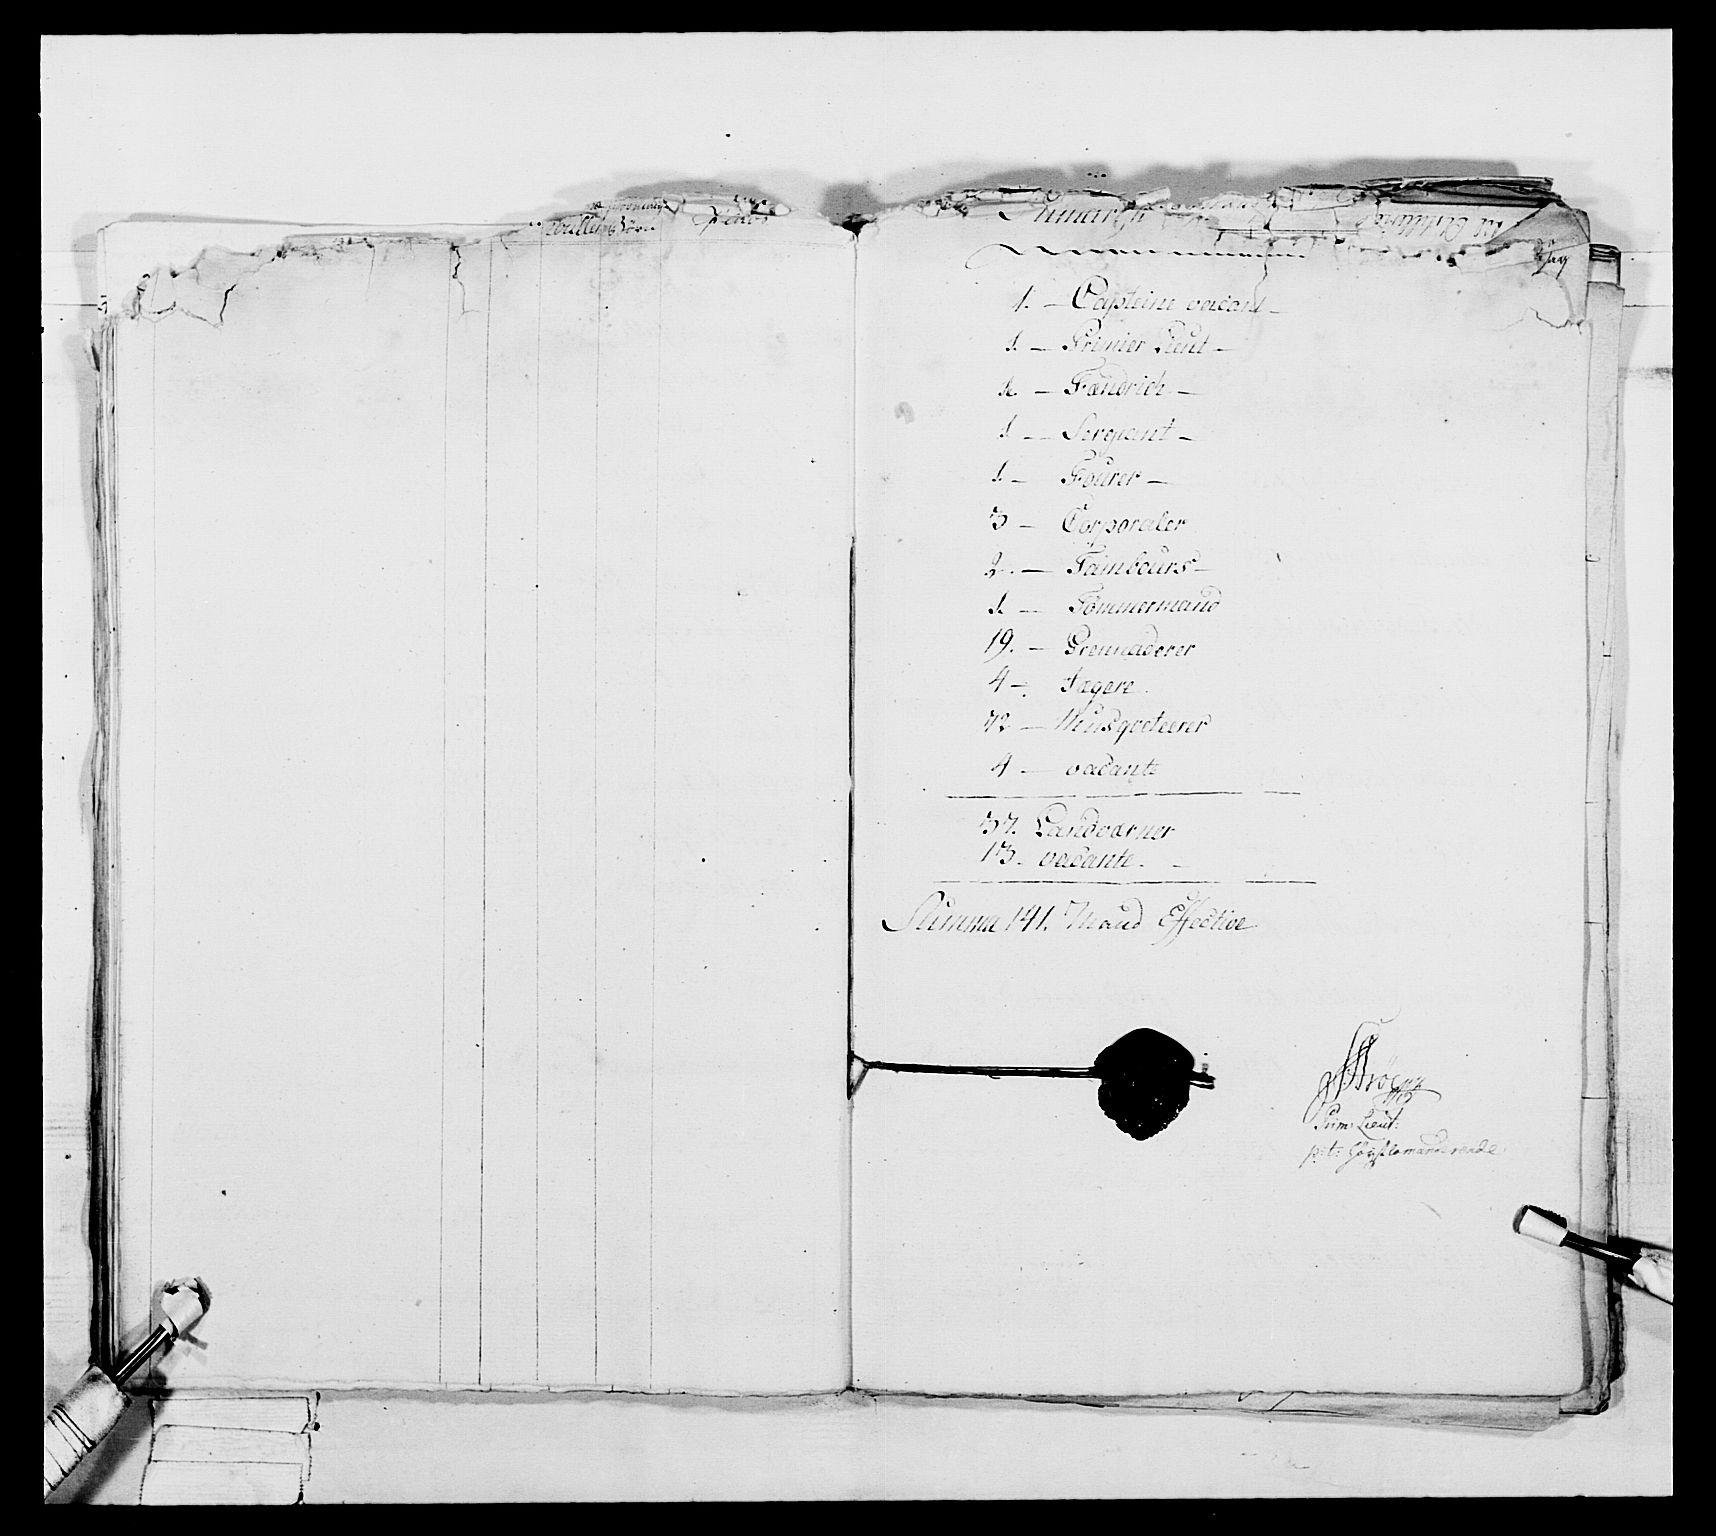 1. — Capteine vacant —
1. — Premier Lieut —
1. — Fændrich —
1. — Sergeant —
1. — Fourer —
3 — Corporaler
2. — Tambours —
1. — Tömmermand
19. — Grennaderer
4 — Jægere.
72 — Musqveteerer
4 — vacante
37. Landværner
13. vacante. —
Summa 141. Mand Effective
Prim: Lieut:
p: t: Høystcomanderende